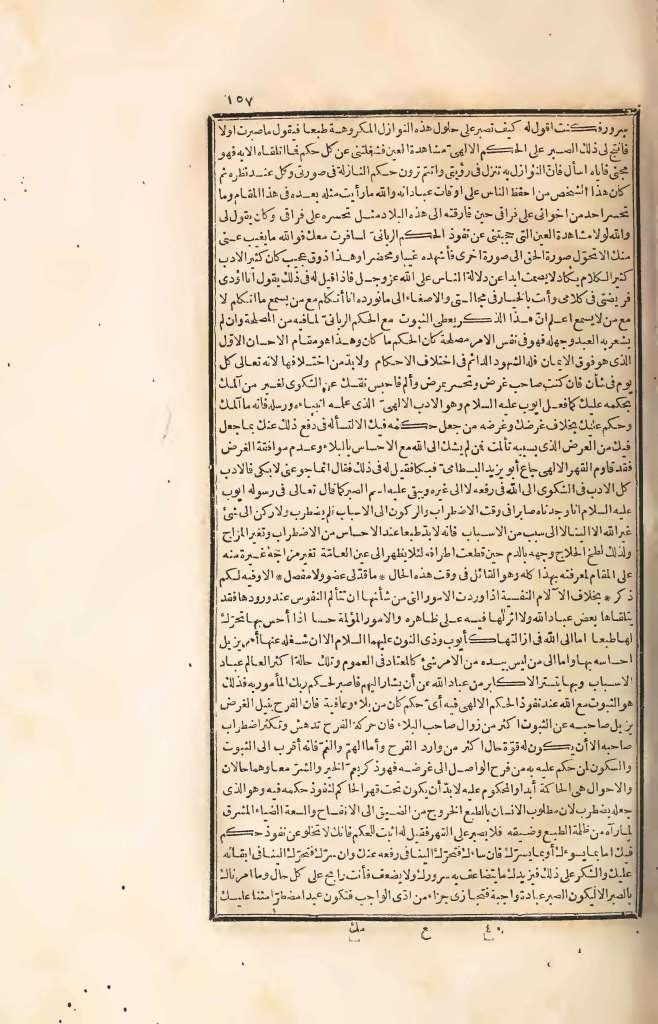 ١٥٧
بسرور فكنت اقول له كيف تصبر على حلول هذه النوازل المكروهة طبعا فيقول ما صبرت اولا
فانتج لى ذلك الصبر على الحكم الالهى مشاهدة العين فشغلتنى عن كل حكم فما اتلقاه الا به فهو
مجنى فاياه اسأل فان النوازل به تنزل فى رؤيتى وانتم ترون حكم النازلة فى صورتى وكل عند نظره ثم
كان هذا الشخص من احفظ الناس على اوقات عباداته والله ما رأيت مثله بعده فى هذا المقام وما
تحسر احد من اخوانى على فراقى حين فارقته الى هذه البلاد مثل تحسره على فراقى وكان يقول لى
والله لولا مشاهدة العين التى حجبتنى عن نفوذ الحكم الربانى لسافرت معك فوالله ما يغيب عنى
منك الا تحول صورة الحق الى صورة اخرى فأشهده غيبا ومحضرا وهذا ذوق عجيب كان كثير الادب
كثير الكلام يكاد لا يصمت ابدا عن دلالة الناس على الله عز وجل فاذا قيل له فى ذلك يقول أنا اؤدى
فريضتى فى كلامى وأنت بالخيار فى مجالستى والاصغاء الى ما نورده انا أتكلم مع من يسمع ما اتكلم لا
مع من لا يسمع اعلم انّ هذا الذكر يعطى الثبوت مع الحكم الربانى لما فيه من المصلحة وان لم
يشعر به العبد وجهله فهو فى نفس الامر مصلحة كان الحكم ما كان وهذا هو مقام الاحسان الاول
الذى هو فوق الايمان فله الشهود الدائم فى اختلاف الاحكام ولا بد من اختلافها لانه تعالى كل
يوم فى شأن فان كنت صاحب غرض وتحس بمرض وألم فاحبس نفسك عن الشكوى لغير من آلمك
بحكمه عليك كما فعل ايوب عليه السلام وهو الادب الالهى الذى علمه انبياءه ورسله فانه ما آلمك
وحكم عليك بخلاف غرضك وغرضه من جعل حكمه فيك الا لتسأله فى دفع ذلك عنك بما جعل
فيك من العرض الذى بسببه تألمت فمن لم يشك الى الله مع الاحساس بالبلاء وعدم موافقة الغرض
فقد قاوم القهر الالهى جاع أبو يزيد البسطامى فبكا فقيل له فى ذلك فقال انما جوعنى لابكى فالادب
كل الادب فى الشكوى الى الله فى رفعه لا الى غيره ويبقى عليه اسم الصبر كما قال تعالى فى رسوله ايوب
عليه السلام انا وجدناه صابرا فى وقت الاضطراب والركون الى الاسباب فلم يضطرب ولا ركن الى شئ
غير الله الا الينا لا الى سبب من الاسباب فانه لا بد طبعا عند الاحساس من الاضطراب وتغير المزاج
ولذلك لطخ الحلاج وجهه بالدم حين قطعت اطرافه لئلا يظهر الى عين العامة تغير مزاجه غيرة منه
على المقام لمعرفته بهذا كله وهو القائل فى وقت هذه الحال * ما قدّ لى عضو ولا مفصل * الا وفيه لكم
ذكر * بخلاف الآلام النفسية اذا وردت الامور التى من شأنها ان تتألم النفوس عند ورودها فقد
يتلقاها بعض عباد الله ولا اثر لها فيه على ظاهره والامور المؤلمة حسا اذا أحس بها تحرك
لها طبعا اما الى الله فى ازالتها كأيوب وذى النون عليهما السلام الا ان شغله عنها أمر يزيل
احساسه بها واما الى من ليس بيده من الامر شئ كالمعتاد فى العموم وتلك حالة اكثر العالم عباد
الاسباب وبها يتستر الاكابر من عباد الله عن أن يشار اليهم فاصبر لحكم ربك المأمور به فذلك
هو الثبوت مع الله عند نفوذ الحكم الالهى فيه أى حكم كان من بلاء وعافية فان الفرح بنيل الغرض
يزيل صاحبه عن الثبوت اكثر من زوال صاحب البلاء فان حركة الفرح تدهش وتكثر اضطراب
صاحبه الا أن يكون له قوة حال اكثر من وارد الفرح وأما الهم والغم فانه أقرب الى الثبوت
والسكون لمن حكم عليه به من فرح الواصل الى غرضه فهو ذكر يعم الخير والشر معا وهما حالان
والاحوال هى الحاكمة أبدا والمحكوم عليه لا بد أن يكون تحت قهر الحاكم لنفوذ حكمه فيه وهو الذى
جعله يضطرب لان مطلوب الانسان بالطبع الخروج من الضيق الى الانفساح والسعة الضياء المشرق
لما رآه من ظلمة الطبع وضيقه فلا يصبر على القهر فقيل له اثبت للحكم فانك لا تخلو عن نفوذ حكم
فيك اما بما يسوءك أو بما يسرك فان ساءك فتحرك الينا فى رفعه عنك وان سرك فتحرك الينا فى ابقائه
عليك والشكر على ذلك فنزيدك ما يتضاعف به سرورك ولا يضعف فأنت رابح على كل حال وما امرناك
بالصبر الا ليكون الصبر عبادة واجبة فتجازى جزاء من ادى الواجب فتكون عبدا مضطرا مننا عليك
٤٠ ع مك